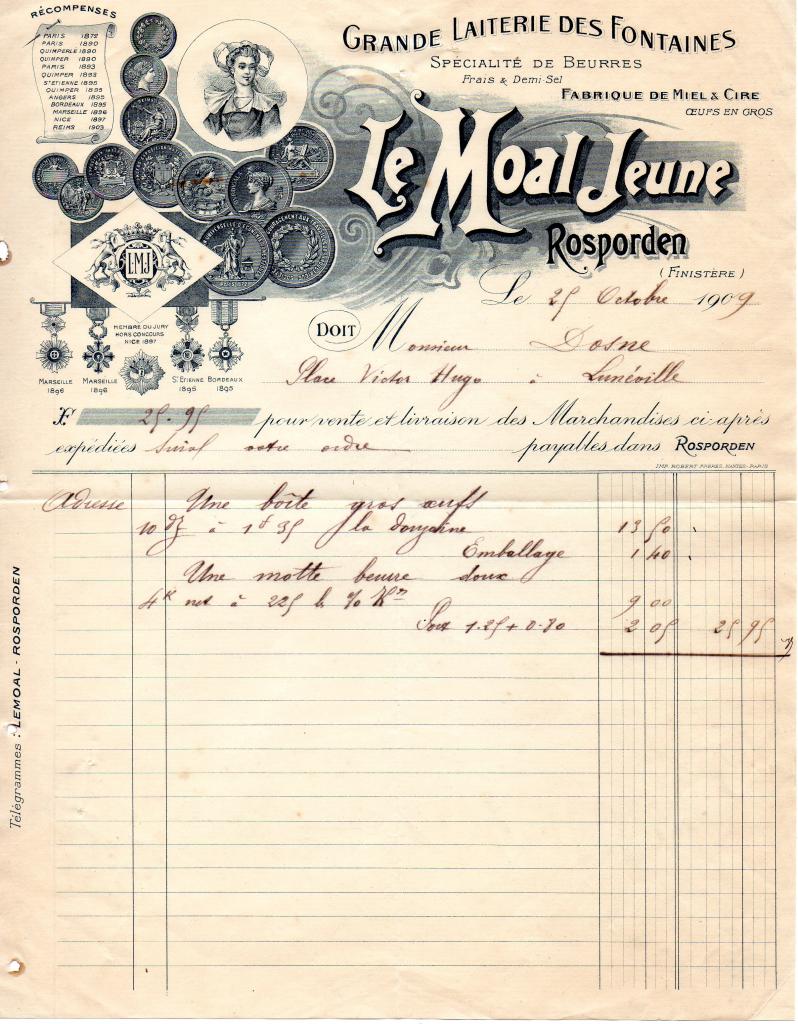 RÉCOMPENSES
PARIS 1872
PARIS 1890
QUIMPERLE 1890
QUIMPER 1890
PARIS 1893
QUIMPER 1893
ST ETIENNE 1895
QUIMPER 1895
ANGERS 1895
BORDEAUX 1895
MARSEILLE 1896
NICE 1897
REIMS 1903
GRANDE LAITERIE DES FONTAINES
SPÉCIALITÉ DE BEURRES
Frais & Demi-Sel
FABRIQUE DE MIEL & CIRE
ŒUFS EN GROS
Le Moal Jeune
Rosporden
(FINISTÈRE)
LMJ
MEMBRE DU JURY
HORS CONCOURS
NICE 1897
MARSEILLE 1896
MARSEILLE 1896
ST ETIENNE 1895
BORDEAUX 1895
Le 25 Octobre 1909
DOIT Monsieur Dosne
Place Victor Hugo à Lunéville
F. 25.95 pour vente et livraison des Marchandises ci-après
expédiées Suivt votre ordre payables dans ROSPORDEN
IMP. ROBERT FRÈRES, NANTES-PARIS
Adresse Une boîte gros œufs
10 dz à 1f35 la douzaine 13 50
Emballage 1 40
Une motte beurre doux
4k net à 225 % 9 00
Port 1.25 + 0.80 2 05 25 95
Télégrammes : LEMOAL - ROSPORDEN